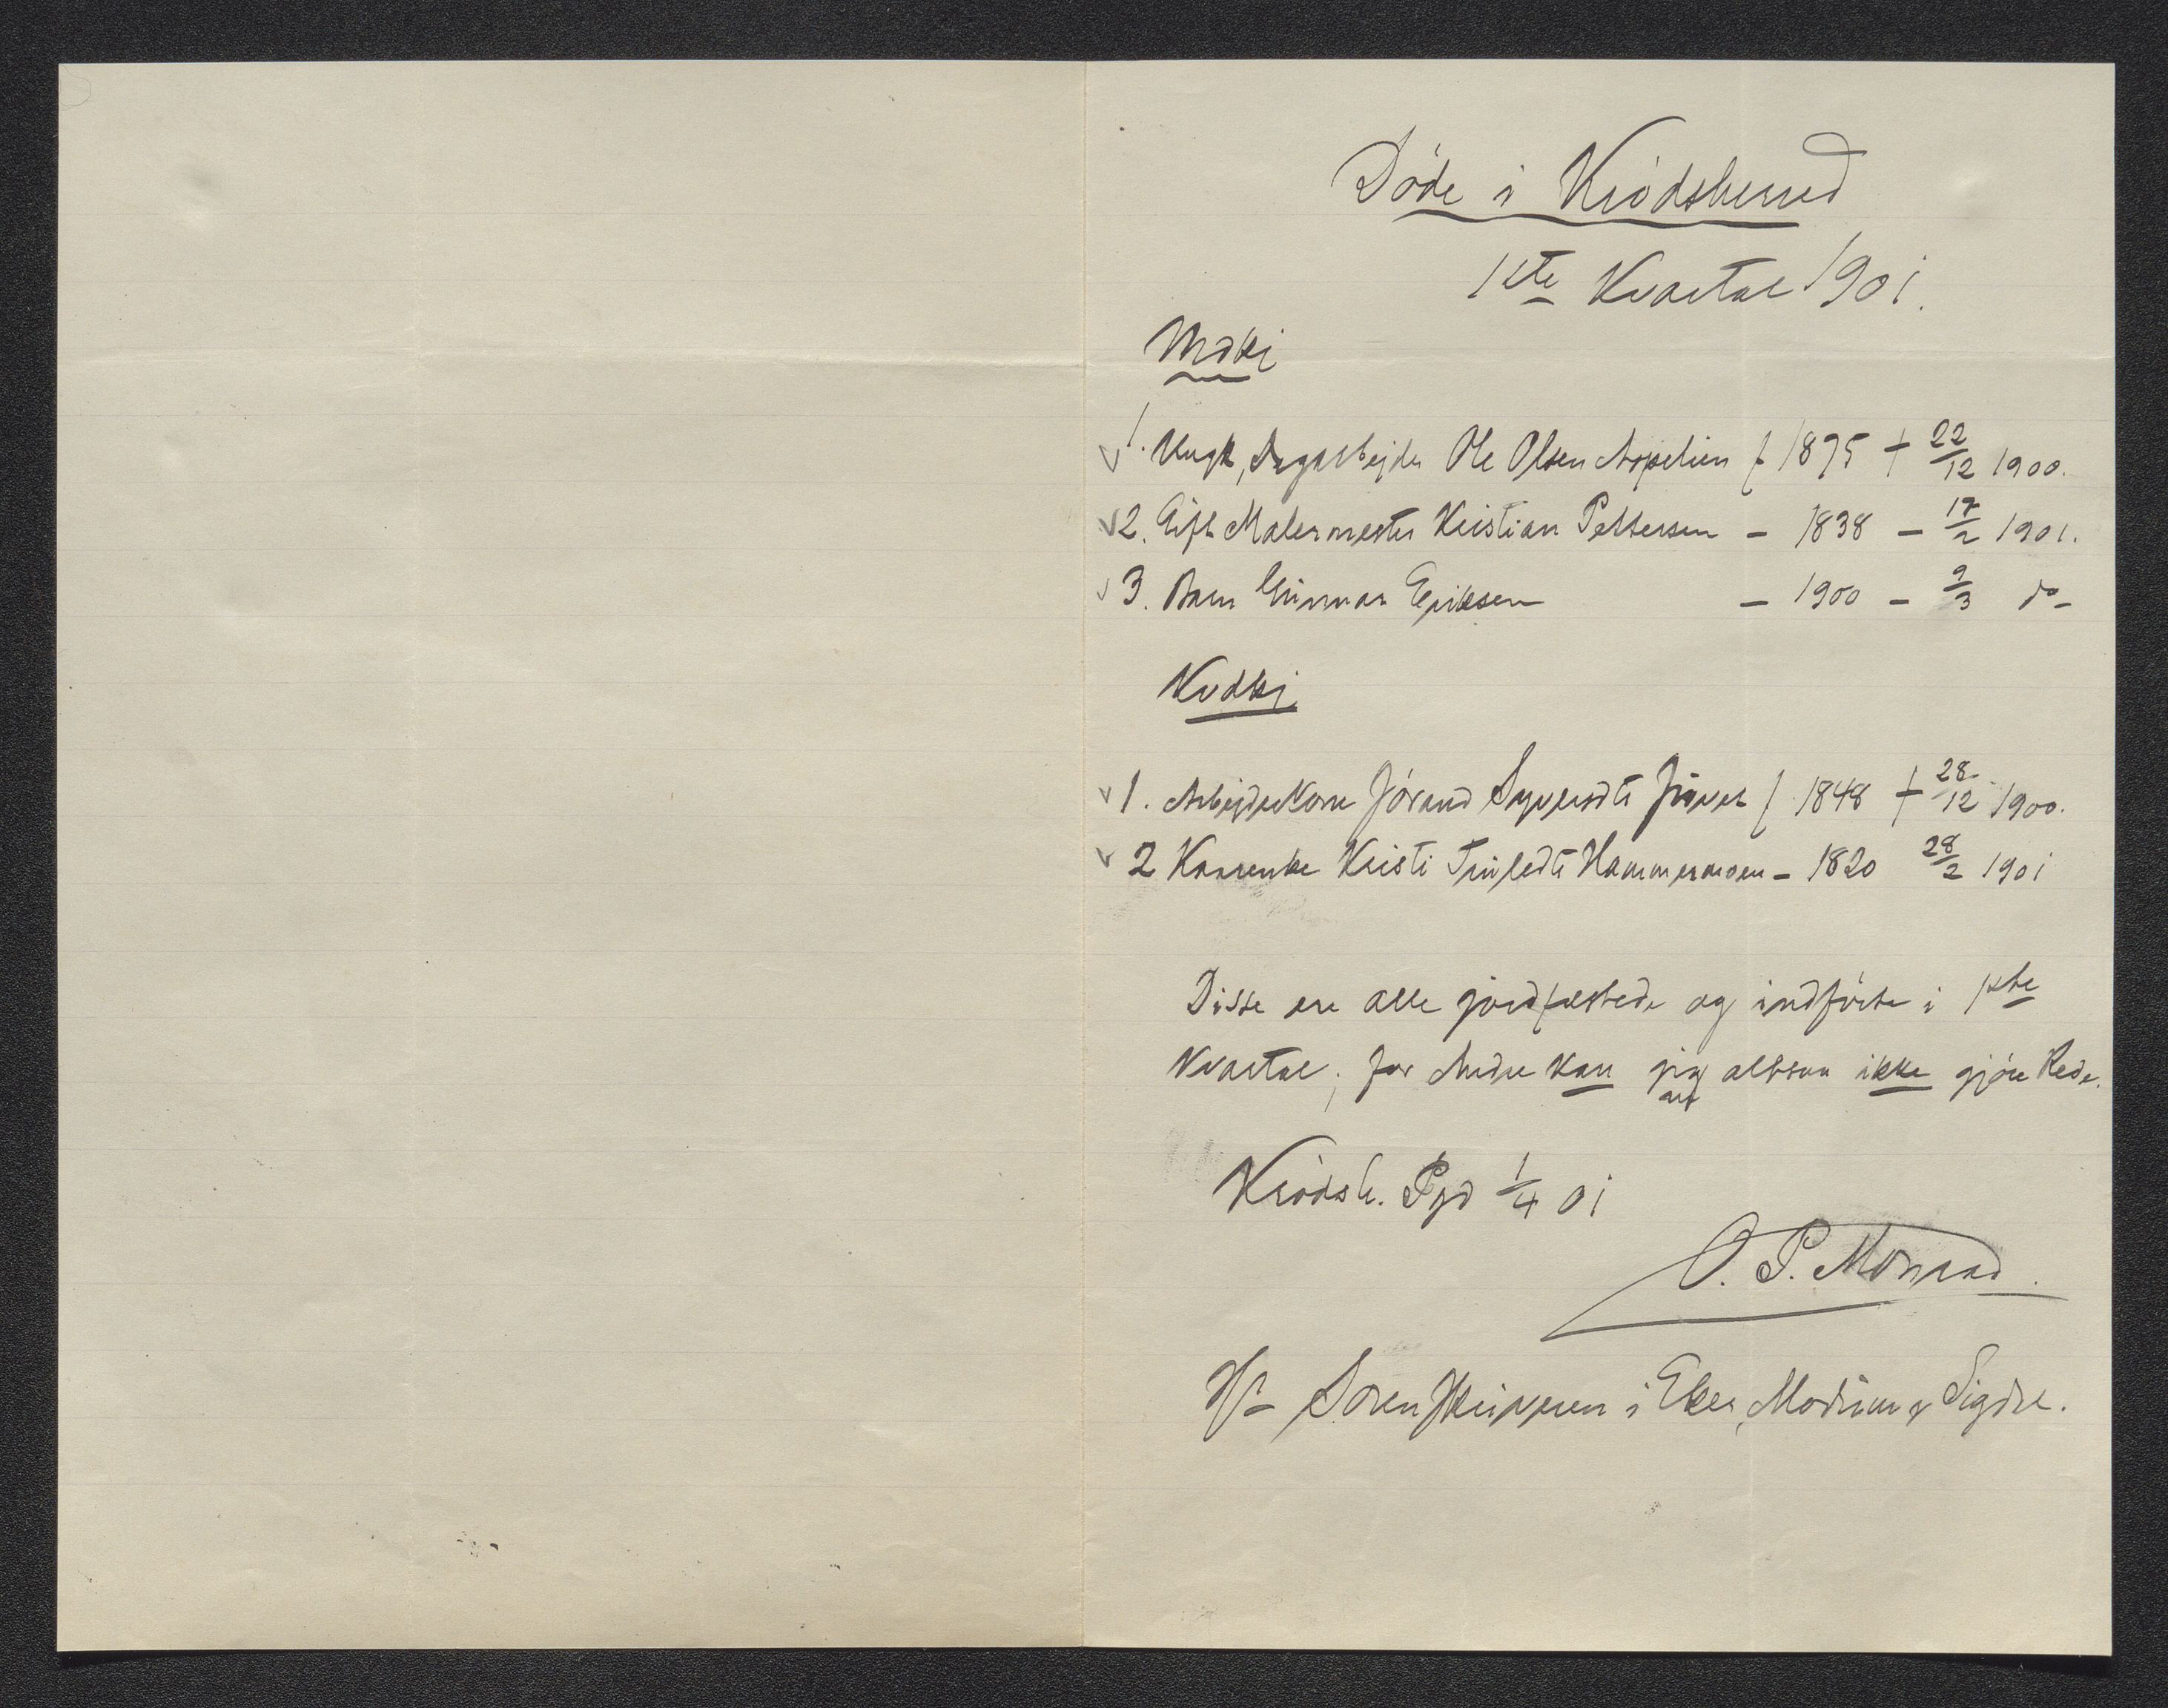 Döde i Krödsherred
1ste Kvartal 1901.
Mdkj
1. Ungk, Dagarbejder Ole Olsen Aspelien f 1875 + 22/12 1900.
2. Gift Malermester Kristian Pettersen – 1838 – 17/2 1901.
3. Barn Gunnar Eriksen – 1900 – 9/3 do –
Kvdkj
1. Arbejderkone Jörand Syversdt f 1848 + 28/12 1900.
2 Kaarenke Kristi Trulsdt Hammermoen – 1820 28/2 1901
Disse ere alle jordfæstede og indförte i 1ste
Kvartal; for Andre kan jeg altsaa ikke gjöre Rede.
Krödsh. Pgd 1/4 01
O. P. Monrad.
Hr Sorenskriveren i Eker, Modum & Sigdal.